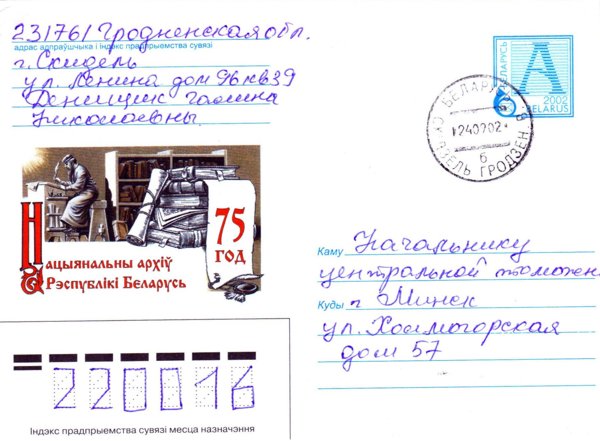 231761 Гродненская обл.
адрас адпраўшчыка і індэкс прадпрыемства сувязі
г. Скидель
ул. Ленина дом 9б кв 39
Денищик Галина
Николаевны.
БЕЛАРУСЬ
A
2002
BELARUS
БЕЛАРУСЬ
240202
б
СКІДЗЕЛЬ ГРОДЗЕН. В.
75
ГОД
Нацыянальны архіў
Рэспублікі Беларусь
Каму Начальнику
центральной таможен
Куды г Минск
ул. Хоимогорская
дом 57
220016
Індэкс прадпрыемства сувязі месца назначэння